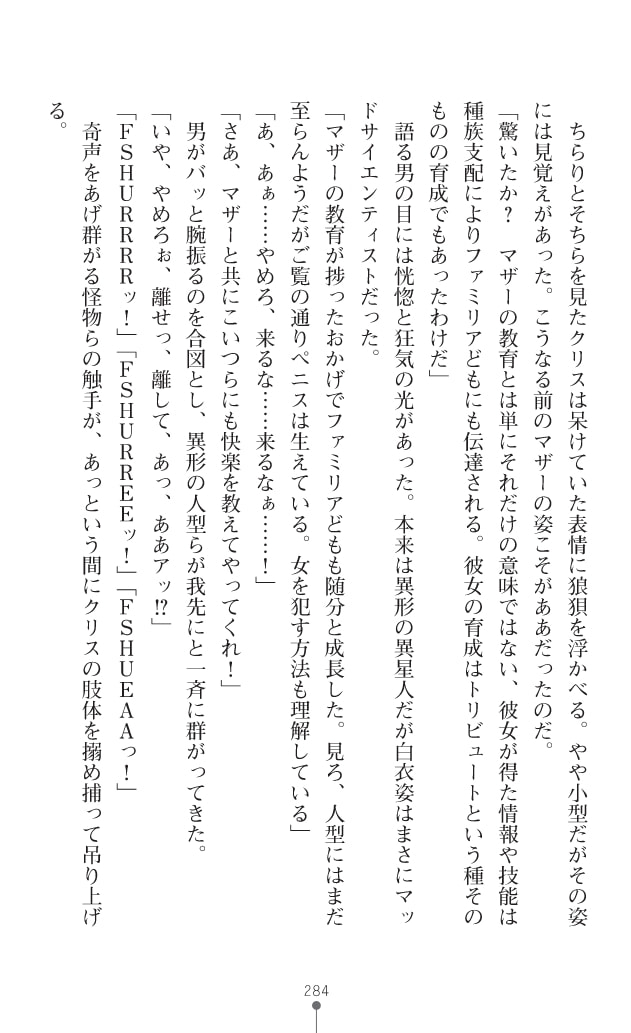 ちらりとそちらを見たクリスは呆けていた表情に狼狽を浮かべる。やや小型だがその姿
には見覚えがあった。こうなる前のマザーの姿こそがああだったのだ。
「驚いたか？　マザーの教育とは単にそれだけの意味ではない、彼女が得た情報や技能は
種族支配によりファミリアどもにも伝達される。彼女の育成はトリビュートという種その
ものの育成でもあったわけだ」
　語る男の目には恍惚と狂気の光があった。本来は異形の異星人だが白衣姿はまさにマッ
ドサイエンティストだった。
「マザーの教育が捗ったおかげでファミリアどもも随分と成長した。見ろ、人型にはまだ
至らんようだがご覧の通りペニスは生えている。女を犯す方法も理解している」
「あ、あぁ……やめろ、来るな……来るなぁ……！」
「さあ、マザーと共にこいつらにも快楽を教えてやってくれ！」
　男がバッと腕振るのを合図とし、異形の人型らが我先にと一斉に群がってきた。
「いや、やめろぉ、離せっ、離して、あっ、ああアッ!?」
「ＦＳＨＵＲＲＲＲッ！」「ＦＳＨＵＲＲＥＥッ！」「ＦＳＨＵＥＡＡっ！」
　奇声をあげ群がる怪物らの触手が、あっという間にクリスの肢体を搦め捕って吊り上げ
る。
284